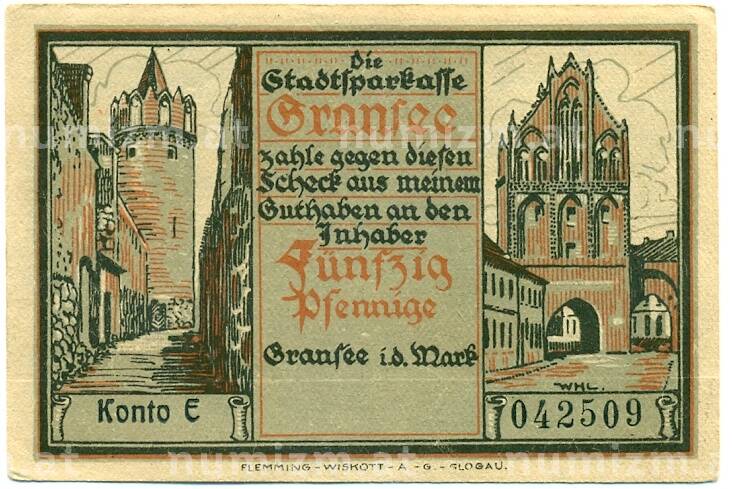 Die
Stadtsparkasse
Gransee
zahle gegen diesen
Scheck aus meinem
Guthaben an den
Inhaber
Fünfzig
Pfennige
Gransee i.d. Mark
WHL.
Konto E
042509
FLEMMING-WISKOTT-A-G-GLOGAU.
numizm.at
numizm.at
numizm.at
at
numizm.at
numizm